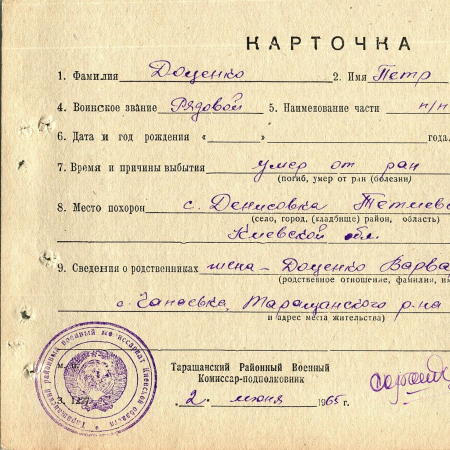 КАРТОЧКА
1. Фамилия Доценко 2. Имя Петр
4. Воинское звание Рядовой 5. Наименование части п/п
6. Дата и год рождения « » года.
7. Время и причины выбытия умер от ран
(погиб, умер от ран (болезни)
8. Место похорон с. Денисовка Тетиевс
(село, город, (кладбище) район, область)
Киевской обл.
9. Сведения о родственниках жена – ДоценкоВарва
(родственное отношение, фамилия, им
с. Чапаевка, Таращанского р-на
и адрес места жительства)
Таращанский Районный Военный
Комиссар-подполковник
2. июня 1965 г.
Таращанский районный военный комиссариат Киевской области